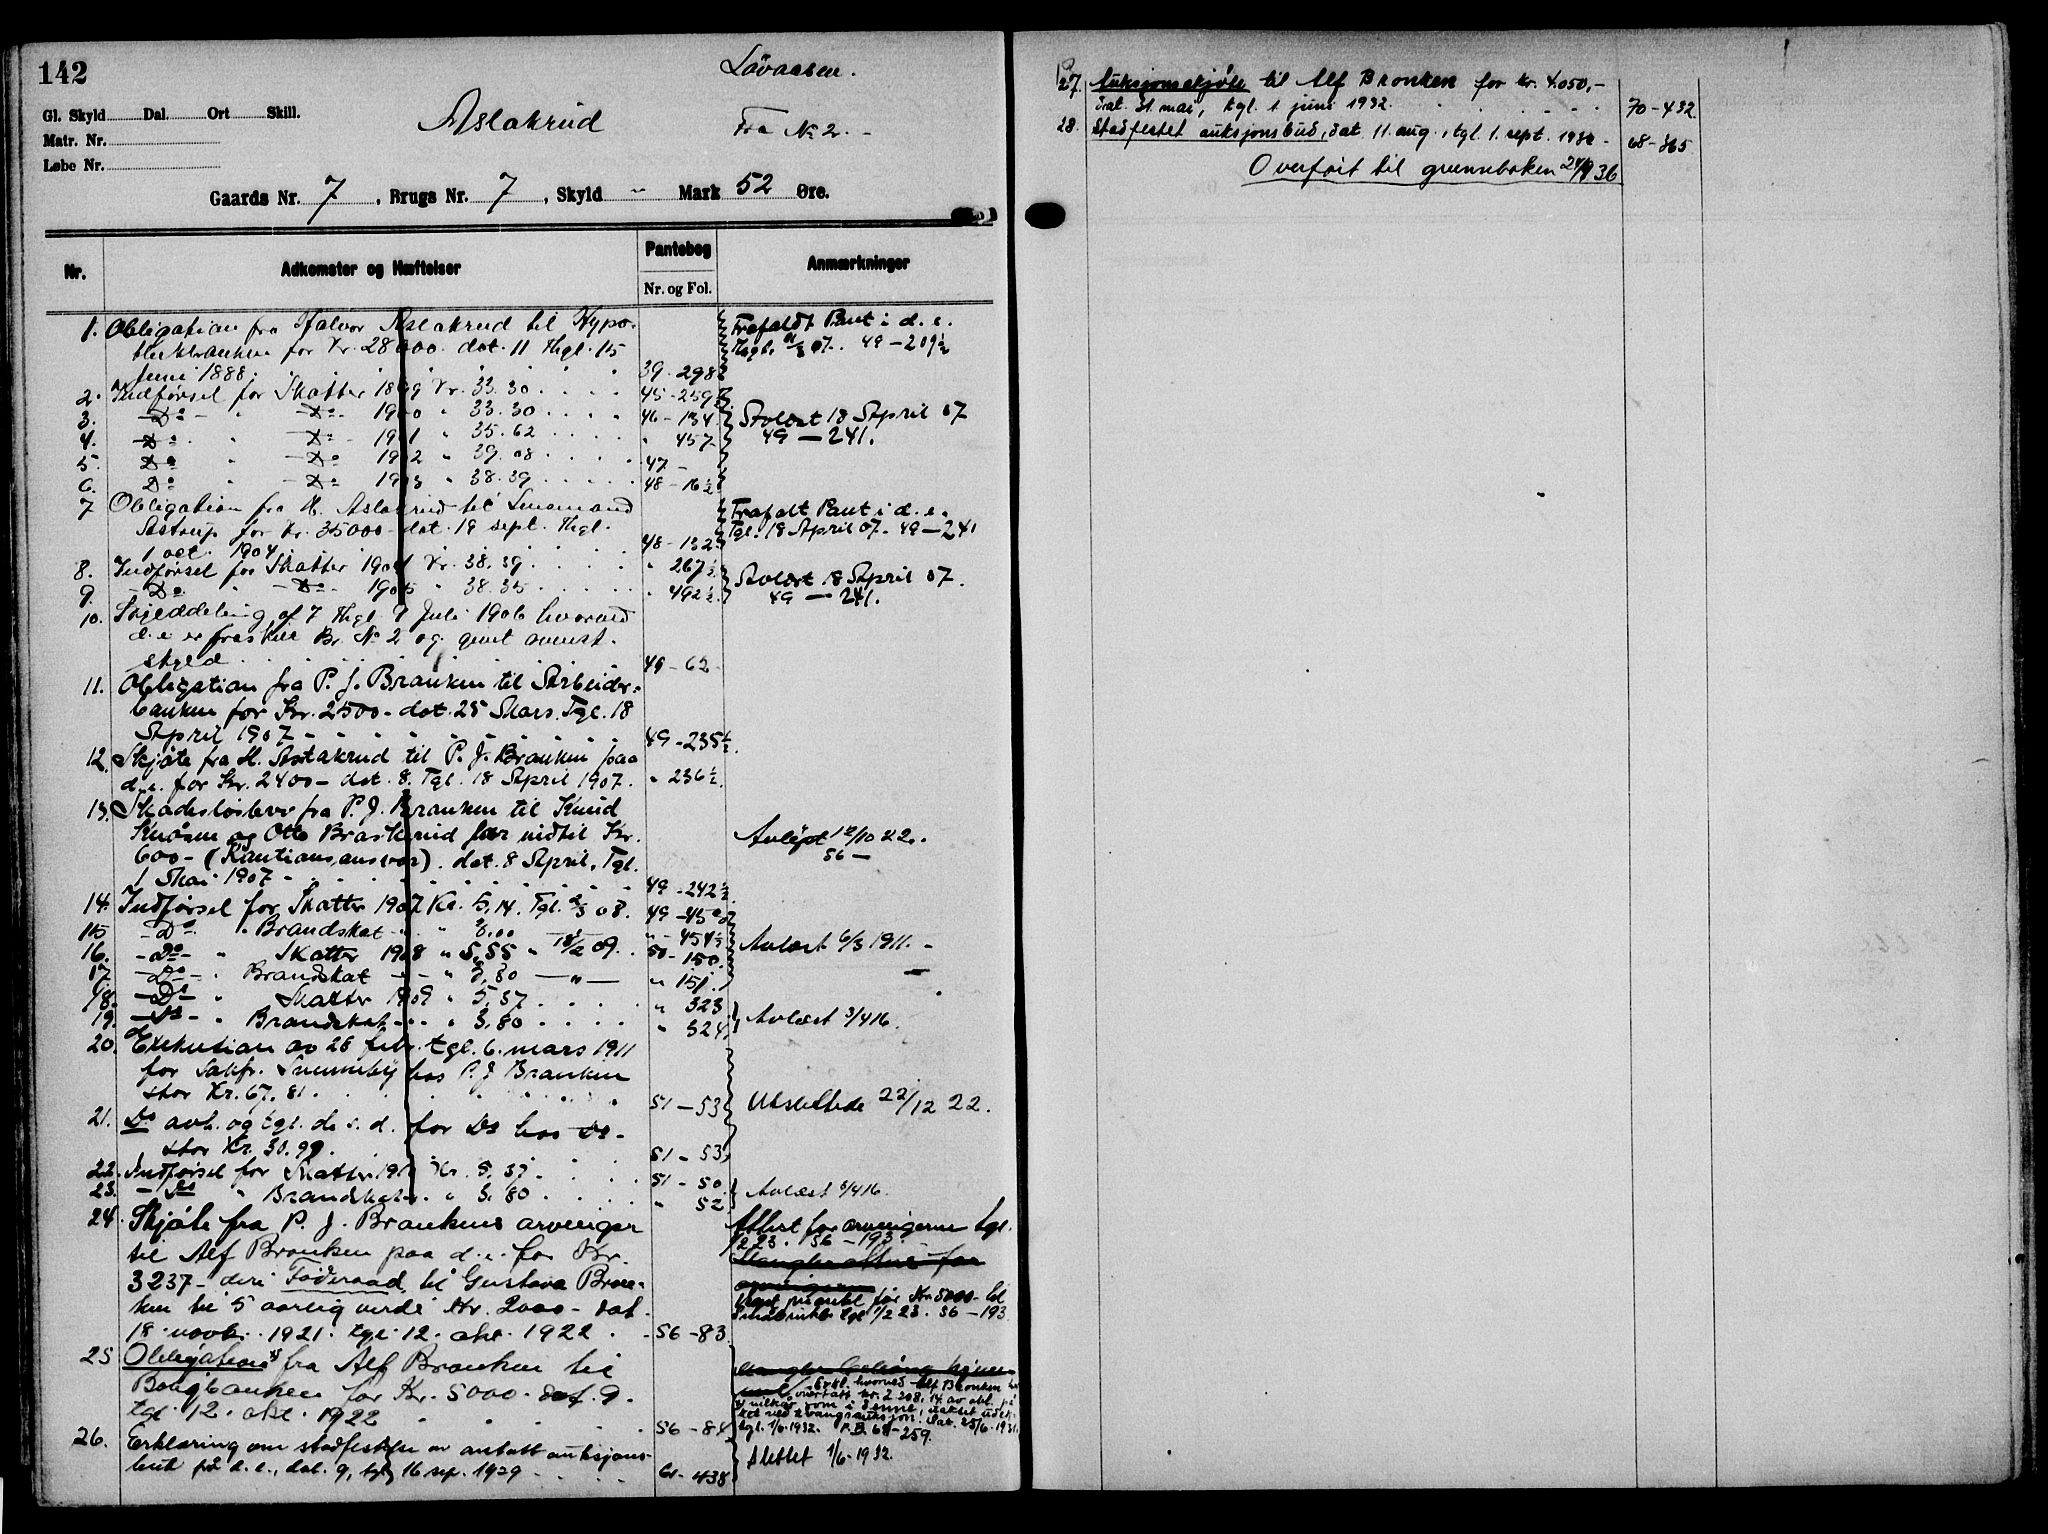 142
Løvaasen.
Gl. Skyld Dal. Ort Skill.
Aslakrud
Fra No 2. -
Matr. Nr.
Løbe Nr.
Gaards Nr. 7, Brugs Nr. 7, Skyld " Mark 52 Øre.
Nr. Adkomster og Hæftelser Pantebog Anmærkninger
Nr. og Fol.
1. Obligation fra Halvor Aslakrud til Hypo-
thekbanken for Kr. 28000. dat. 11 thgl. 15
Juni 1888. 39-298
Frafaldt Pant i d. e.
49-209½
2. Indførsel for Skatter 1899 Kr. 33.30 45-259
3. -Do- " -Do- 1900 " 33.30 46-134
4. -Do- " -Do- 1901 " 35.62 " 457
5. -Do- " -Do- 1902 " 39.08 47-
6. Do " -Do 1903 " 38.39 48-16½
Avlæst 18 April 07
49-241.
7 Obligation fra H. Aslakrud til
Astrup for Kr. 35000- dat. 19 sept. Thgl.
1 oct. 1904 48-132
Frafalt Pant i d. e.
Tgl. 18 April 07. 49-241
8. Indførsel for Skatter 1904 Kr. 38.39 " 267½
9. -Do- -Do- 1905 " 38.35 " 492½
Avlæst 18 April 07.
49-241.
10. Skylddeling af 7 Thgl. 9 Juli 1906 hvorved
d. e er fraskilt Br. No 2 og givet ovenst.
skyld 49-62
11. Obligation fra P. J. Branken til Arbeider-
banken for Kr. 2500- dat. 25 Mars, Tgl. 18
April 1907 49-235½
12. Skjøte fra H. Aslakrud til P. J. Branken paa
d. e. for Kr. 2400- dat. 8. Tgl. 18 April 1907. " 236½
13. Skadesløsbrev fra P. J. Branken til Knud
og Otto Braskerud for indtil Kr.
600- (Kautionsansvar). dat. 8 April, Tgl.
1 Mai 1907 49-242½
Avlyst 12/10 22.
56-
14. Indførsel for Skatter 1907 Kr. 5,14. Tgl. 08. 49-450
15 -Do- " Brandskat " 3,00 " -454½
16. -Do- " Skatter 1908 " 5,55 " 09. 50-150
17. -Do- " Brandskat - " 3,80 -"- " 151.
Avlæst 6/3 1911. -
18. -Do- " Skatter 1909 " 5,37 " 323
19. -Do- " Brandskat " 3,80 " 324
Avlæst 3/4 16.
20. Exekution av 28 febr. tgl. 6. mars 1911
for Sakfr. hos P. J Branken
stor Kr. 67.81. 51-53
21. Do avh. og tgl. d. s. d. for Do hos Do-
stor Kr. 30.99. 51-53
Utslettede 22/12 22.
22. Indførsel for Skatter Kr. 5,37 51-50
23. -Do- " Brandskat " 3,80 " 52
Avlæst 3/4 16.
24. Skjøte fra P. J. Brankens arvinger
til Alf Branken paa d. e. for Kr.
3237- deri Føderaad til Gustava Bran-
ken til 5 aarlig verdi Kr. 2000- dat.
18. novbr. 1921. tgl. 12. okt. 1922. 56-83
Attest for arvingerne tgl.
23. 56-193.
for Kr. 5000- til
tgl 1/2 23. 56-193
25 Obligation x) fra Alf Branken til
Boligbanken for Kr. 5000- dat. 9.
tgl. 12. okt. 1922 56-84
x) Erkl. hvorved Alf Bronken har
overtatt kr. 2.208,14 av obl. på
vilkår som i denne,
ved tvangsauksjon, dat. 25/6-1931,
tgl. 1/6-1932. P.B. 68-259.
26. Erklæring om stadfestelse av antatt auksjons-
bud på d. e., dat. 9, tgl 16 sep. 1929 61-438
Slettet 1/6-1932.
27. Auksjonsskjøte til Alf Bronken for kr. 4.050,-
dat. 31 mai, tgl. 1 juni 1932. 70-432
28. Stadfestet auksjonsbud, dat. 11. aug., tgl. 1. sept. 68-365
Overført til grunnboken 36